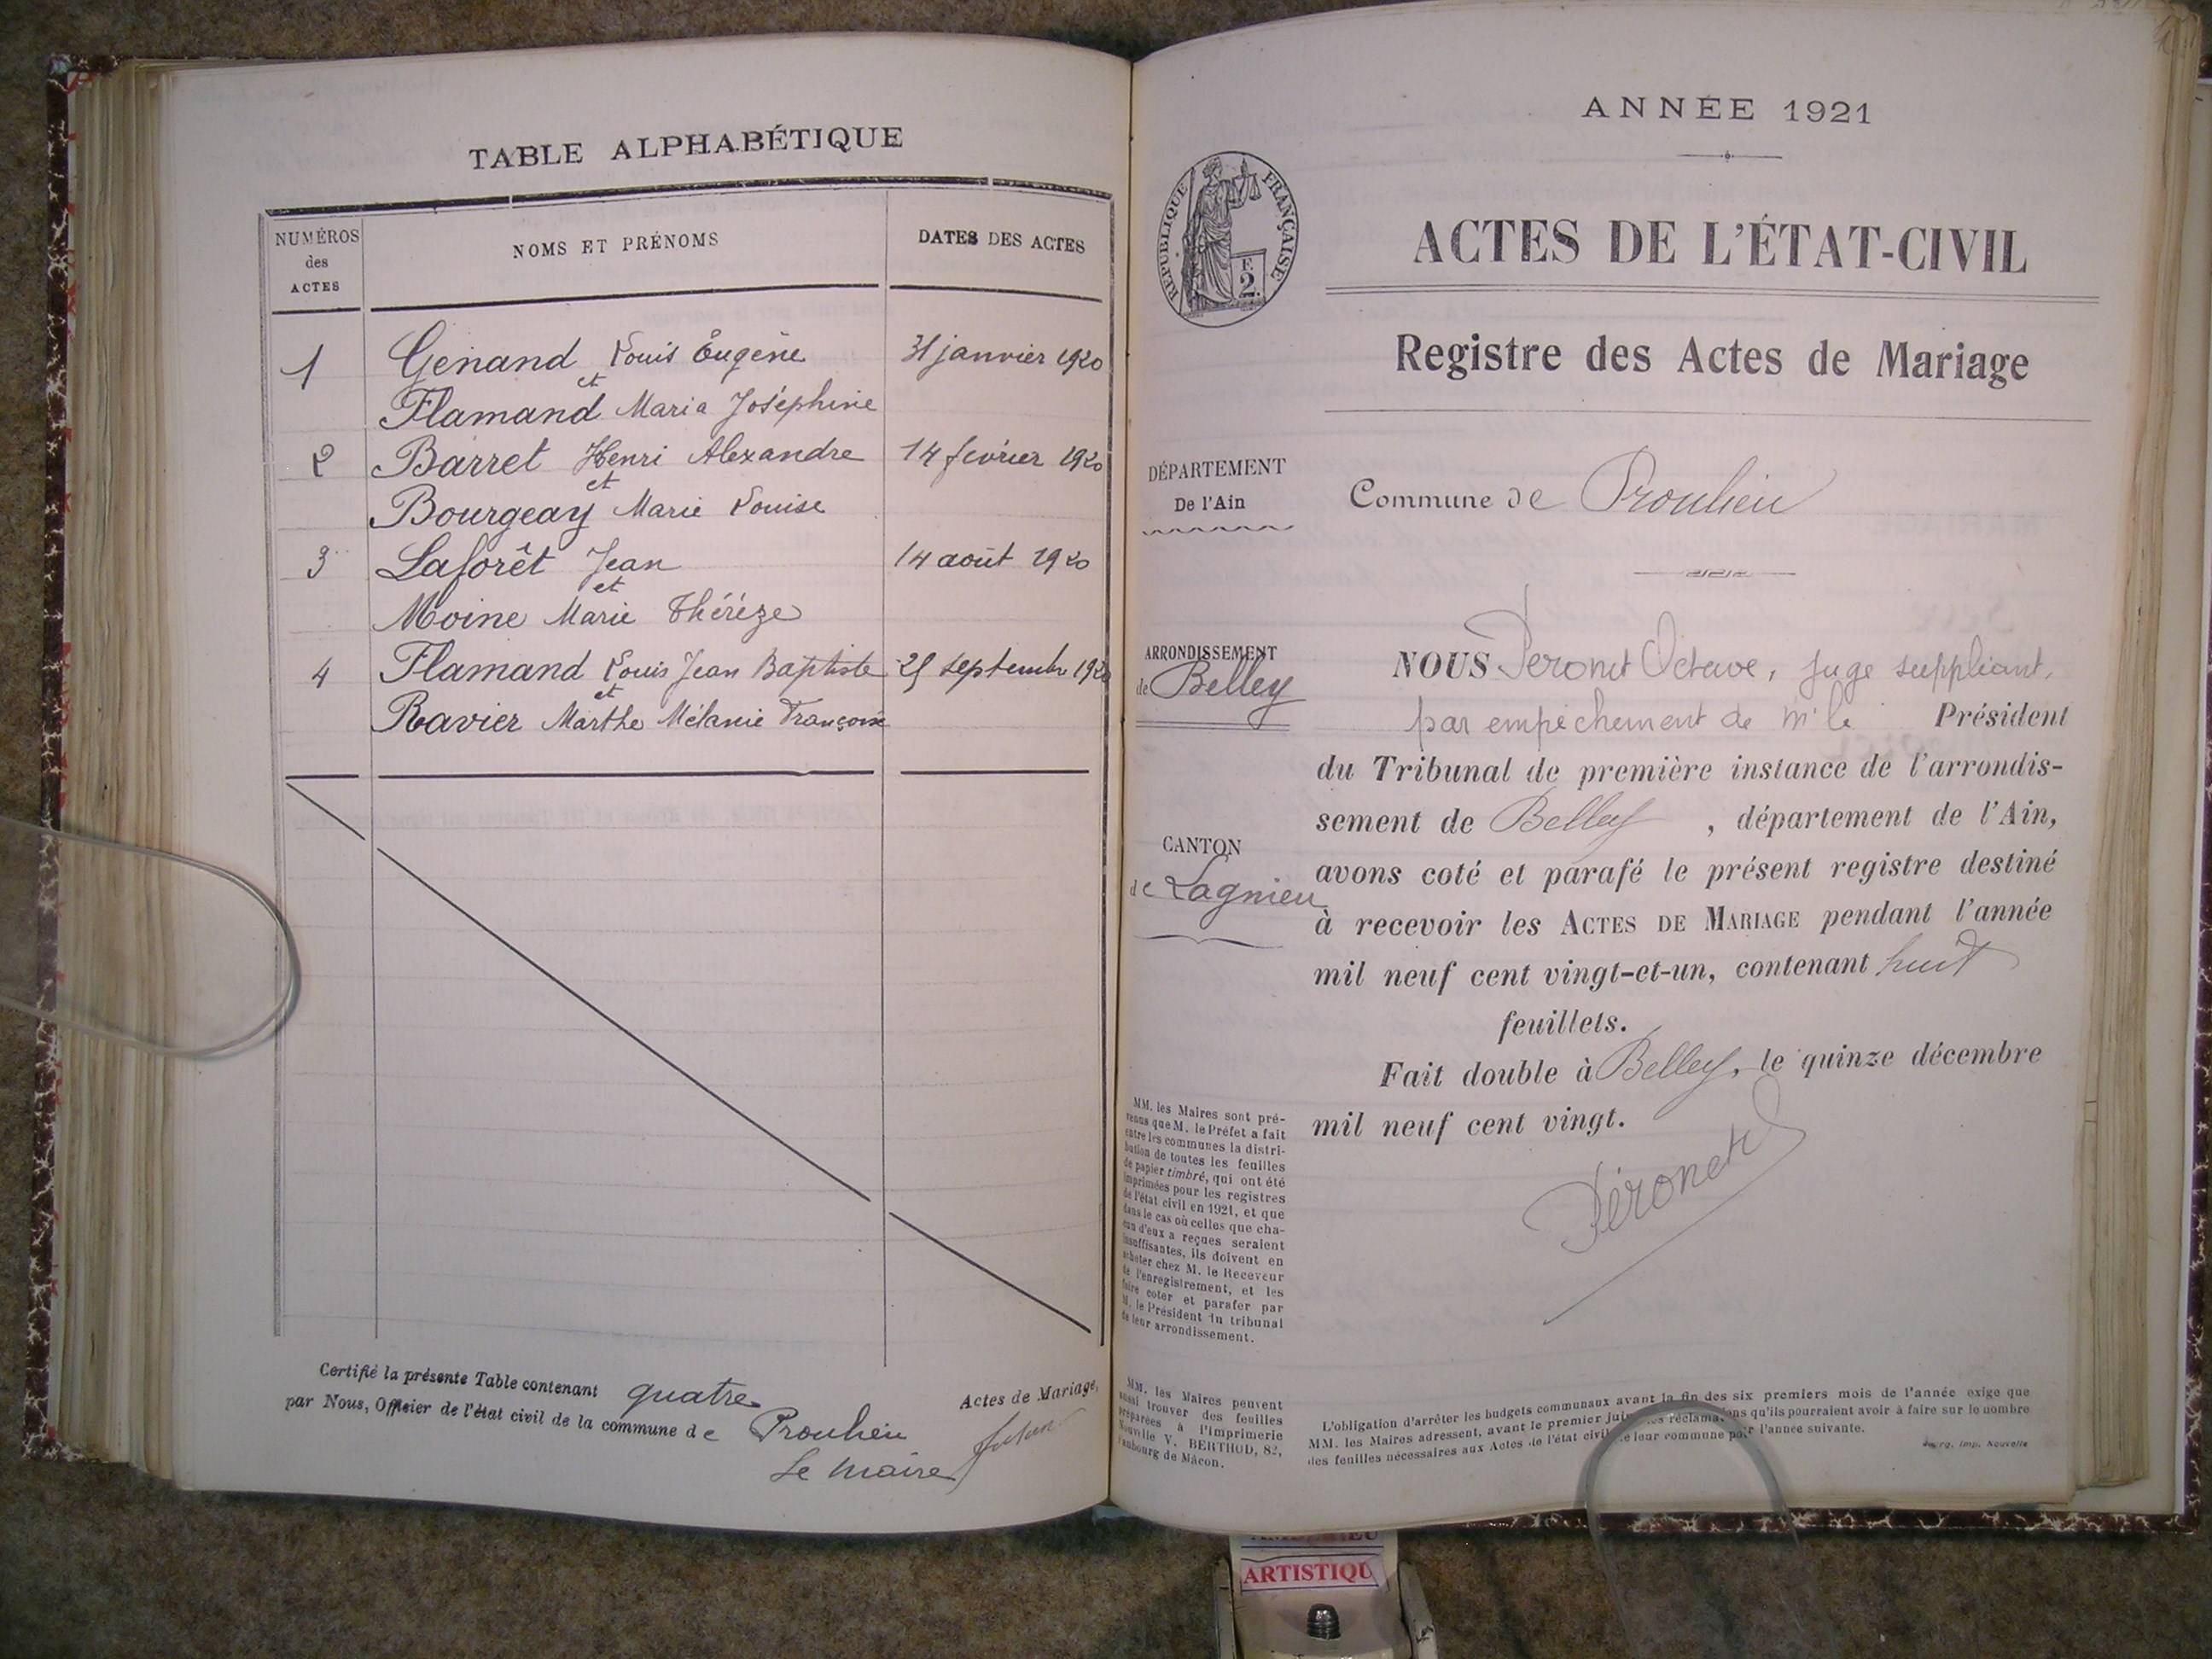 TABLE ALPHABÉTIQUE
NUMÉROS
des
ACTES
NOMS ET PRÉNOMS
DATES DES ACTES
1 Genand Louis Eugène 31 janvier 1920
et
Flamand Maria Joséphine
2 Barret Henri Alexandre 14 février 1920
et
Bourgeay Marie Louise
3 Laforêt Jean 14 août 1920
et
Moine Marie Thérèze
4 Flamand Louis Jean Baptiste 25 septembre 1920
et
Ravier Marthe Mélanie Françoise
Certifié la présente Table contenant quatre Actes de Mariage,
par Nous, Officier de l'état civil de la commune de Proulieu
Le Maire
ANNÉE 1921
RÉPUBLIQUE FRANÇAISE
F.
2.
ACTES DE L'ÉTAT-CIVIL
Registre des Actes de Mariage
DÉPARTEMENT
De l'Ain
Commune de Proulieu
ARRONDISSEMENT
de Belley
CANTON
de Lagnieu
NOUS Péronet Octave, juge suppléant,
par empêchement de Mr le Président
du Tribunal de première instance de l'arrondis-
sement de Belley, département de l'Ain,
avons coté et parafé le présent registre destiné
à recevoir les ACTES DE MARIAGE pendant l'année
mil neuf cent vingt-et-un, contenant huit
feuillets.
Fait double à Belley, le quinze décembre
mil neuf cent vingt.
Péronet
MM. les Maires sont pré-
venus que M. le Préfet a fait
entre les communes la distri-
bution de toutes les feuilles
de papier timbré, qui ont été
imprimées pour les registres
de l'état civil en 1921, et que
dans le cas où celles que cha-
cun d'eux a reçues seraient
insuffisantes, ils doivent en
acheter chez M. le Receveur
de l'enregistrement, et les
faire coter et parafer par
M. le Président du tribunal
de leur arrondissement.
MM. les Maires peuvent
aussi trouver des feuilles
préparées à l'Imprimerie
Nouvelle V. BERTHOD, 82,
faubourg de Mâcon.
L'obligation d'arrêter les budgets communaux avant la fin des six premiers mois de l'année exige que
MM. les Maires adressent, avant le premier juin, les réclamations qu'ils pourraient avoir à faire sur le nombre
des feuilles nécessaires aux Actes de l'état civil de leur commune pour l'année suivante.
Bourg, Imp. Nouvelle
ARTISTIQU